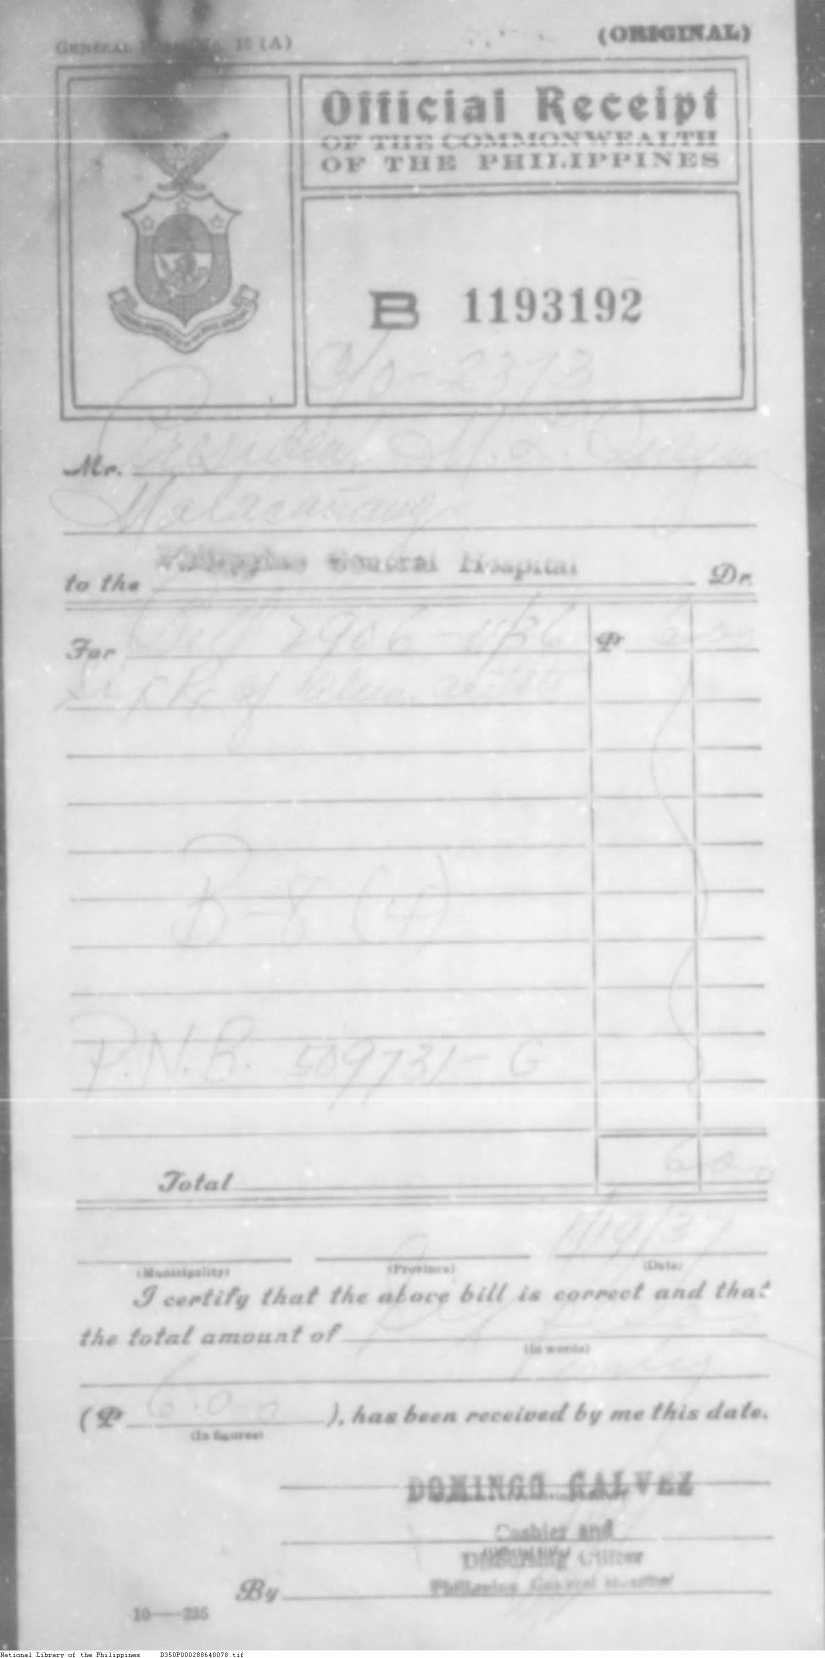 GENERAL FORM No. 13 (A)
(ORIGINAL)
Official Receipt
OF THE COMMONWEALTH
OF THE PHILIPPINES
B 1193192
C/o-2373
Mr. President M. L. Quezon
Malacañang
to the Philippine General Hospital Dr.
For Bill 2906-11/36 ₱ 6.00
of
B-8 (4)
P.N.B. 509731-G
Total 6.00
1/19/37
(Municipality) (Province) (Date)
I certify that the above bill is correct and that
the total amount of Six pesos
(In words)
only
(₱ 6.00 ), has been received by me this date.
(In figures)
DOMINGO GALVEZ
Cashier and
Disbursing Officer
By Philippine General Hospital
10—235
National Library of the Philippines D350P000288640078.tif